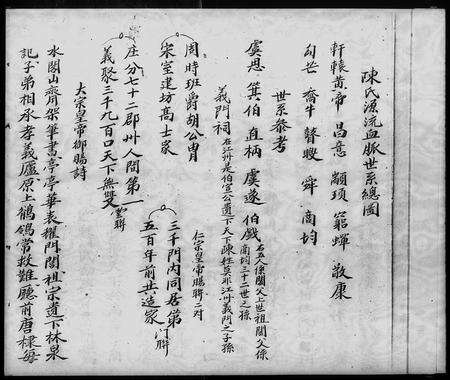 陳氏源流血脉世系總圖
軒轅黃帝 昌意 顓頊 窮蟬 敬康
勾芒 喬牛 瞽瞍 舜 商均
世系參考
虞思 箕伯 直柄 虞遂 伯戲
右五人係閼父上世祖閼父係
商均三十二世之孫
義門祠
右江州是伯宣公遺下天下陳姓莫非江州義門之子孫
周時班爵胡公胄
宋室建坊高士家
仁宗皇帝賜聯二對
庄分七十二郡州人間第一
義聚三千九百口天下無雙
聖聯
三千門內同居第
五百年前共造家
門聯
大宗皇帝御賜詩
水閣山齊架筆書亭亭華表耀門閭祖宗遺下林泉
記子弟相承孝義廬原上鶺鴒常救難廳前唐棣每